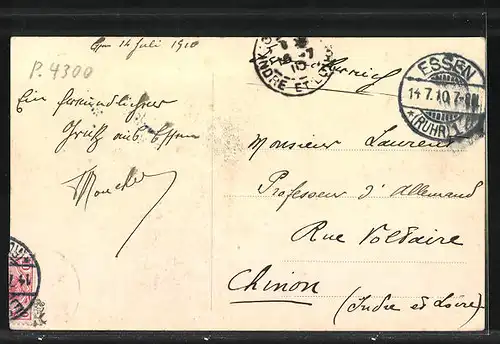 14 Juli 1910
P. 4300
Ein freundlicher
Gruß aus Essen
INDRE ET
ESSEN
14.7.10.7-8
*(RUHR)1
Monsieur Laurent
Professeur d'Allemand
Rue Voltaire
Chinon
(Indre et Loire)